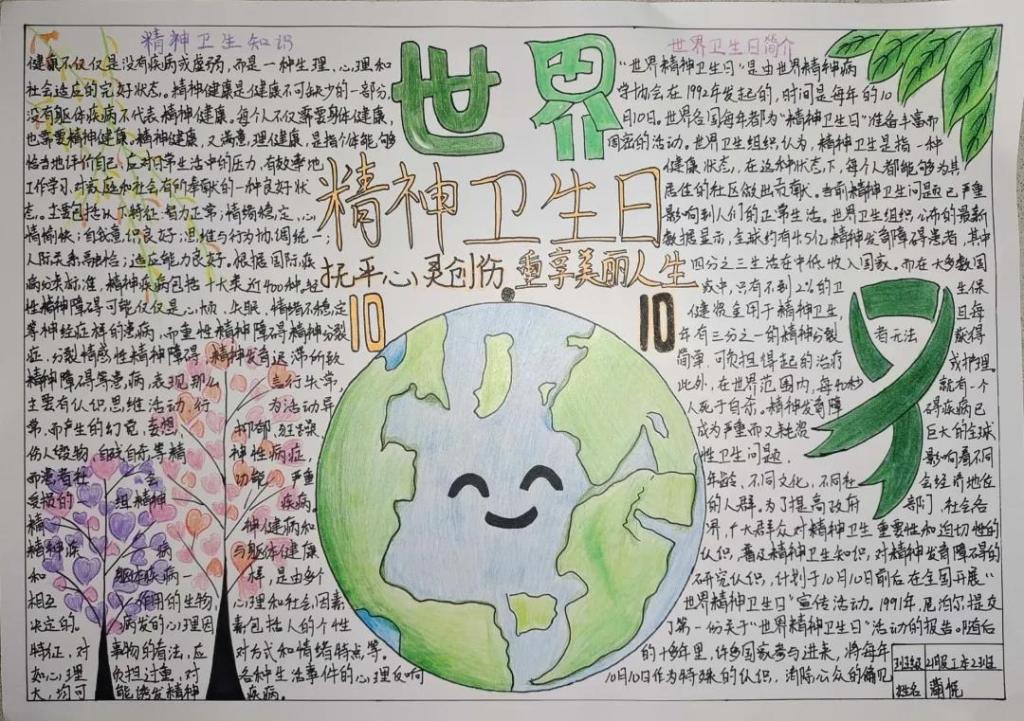 精神卫生知识
健康不仅仅是没有疾病或虚弱,而是一种生理、心理和
社会适应的完好状态。精神健康是健康不可缺少的一部分,
没有躯体疾病不代表精神健康。每个人不仅需要身体健康,
也需要精神健康。精神健康,又满意,理健康,是指个体能够
恰当地评价自己、应对日常生活中的压力、有效率地
工作学习、对家庭和社会有所奉献的一种良好状
态。主要包括以下特征:智力正常;情绪稳定、心
情愉快;自我意识良好;思维与行为协调统一;
人际关系融洽;适应能力良好。根据国际疾
病分类标准,精神疾病包括十大类近400种,轻
性精神障碍可能仅仅是心烦、失眠、情绪不稳定
等神经症样的患病,而重性精神障碍精神分裂
症、分裂情感性精神障碍、精神发育迟滞所致
精神障碍等患病,表现那么言行失常,
主要有认识、思维活动、行为活动异
常,而产生的幻觉、妄想、抑郁、狂躁、
伤人毁物、自残自杀等精神性病症,
而患者社会功能严重
受损的一组精神疾病。
精神健病和
精神疾病与躯体健康
和躯体疾病一样,是由多个
相互作用的生物、心理和社会因素
决定的。病发的心理因素包括人的个性
特征、对事物的看法、应对方式和情绪特点等。
如心理负担过重,对各种生活事件的心理反响
大,均可能诱发精神疾病。
世界
精神卫生日
抚平心灵创伤 重享美丽人生
10 10
世界卫生日简介
“世界精神卫生日”是由世界精神病
学协会在1992年发起的,时间是每年的10
月10日。世界各国每年都为“精神卫生日”准备丰富而
周密的活动。世界卫生组织认为,精神卫生是指一种
健康状态,在这种状态下,每个人都能够为其
居住的社区做出贡献。当前精神卫生问题已严重
影响到人们的正常生活。世界卫生组织公布的最新
数据显示,全球约有4.5亿精神发育障碍患者,其中
四分之三生活在中低收入国家。而在大多数国
家中,只有不到2%的卫生保
健资金用于精神卫生,且每
年有三分之一的精神分裂者无法获得
简单、可负担得起的治疗或护理。
此外,在世界范围内,每40秒就有一个
人死于自杀。精神发育障碍疾病已
成为严重而又耗资巨大的全球
性卫生问题,影响着不同
年龄、不同文化、不同社会经济地位
的人群。为了提高政府部门、社会各
界、广大群众对精神卫生重要性和迫切性的
认识,普及精神卫生知识,对精神发育障碍的
研究认识,计划于10月10日前后在全国开展“
世界精神卫生日”宣传活动。1991年,尼泊尔提交
了第一份关于“世界精神卫生日”活动的报告。随后
的十多年里,许多国家参与进来,将每年
10月10日作为特殊的认识,消除公众的偏见
班级 21服工本2班
姓名